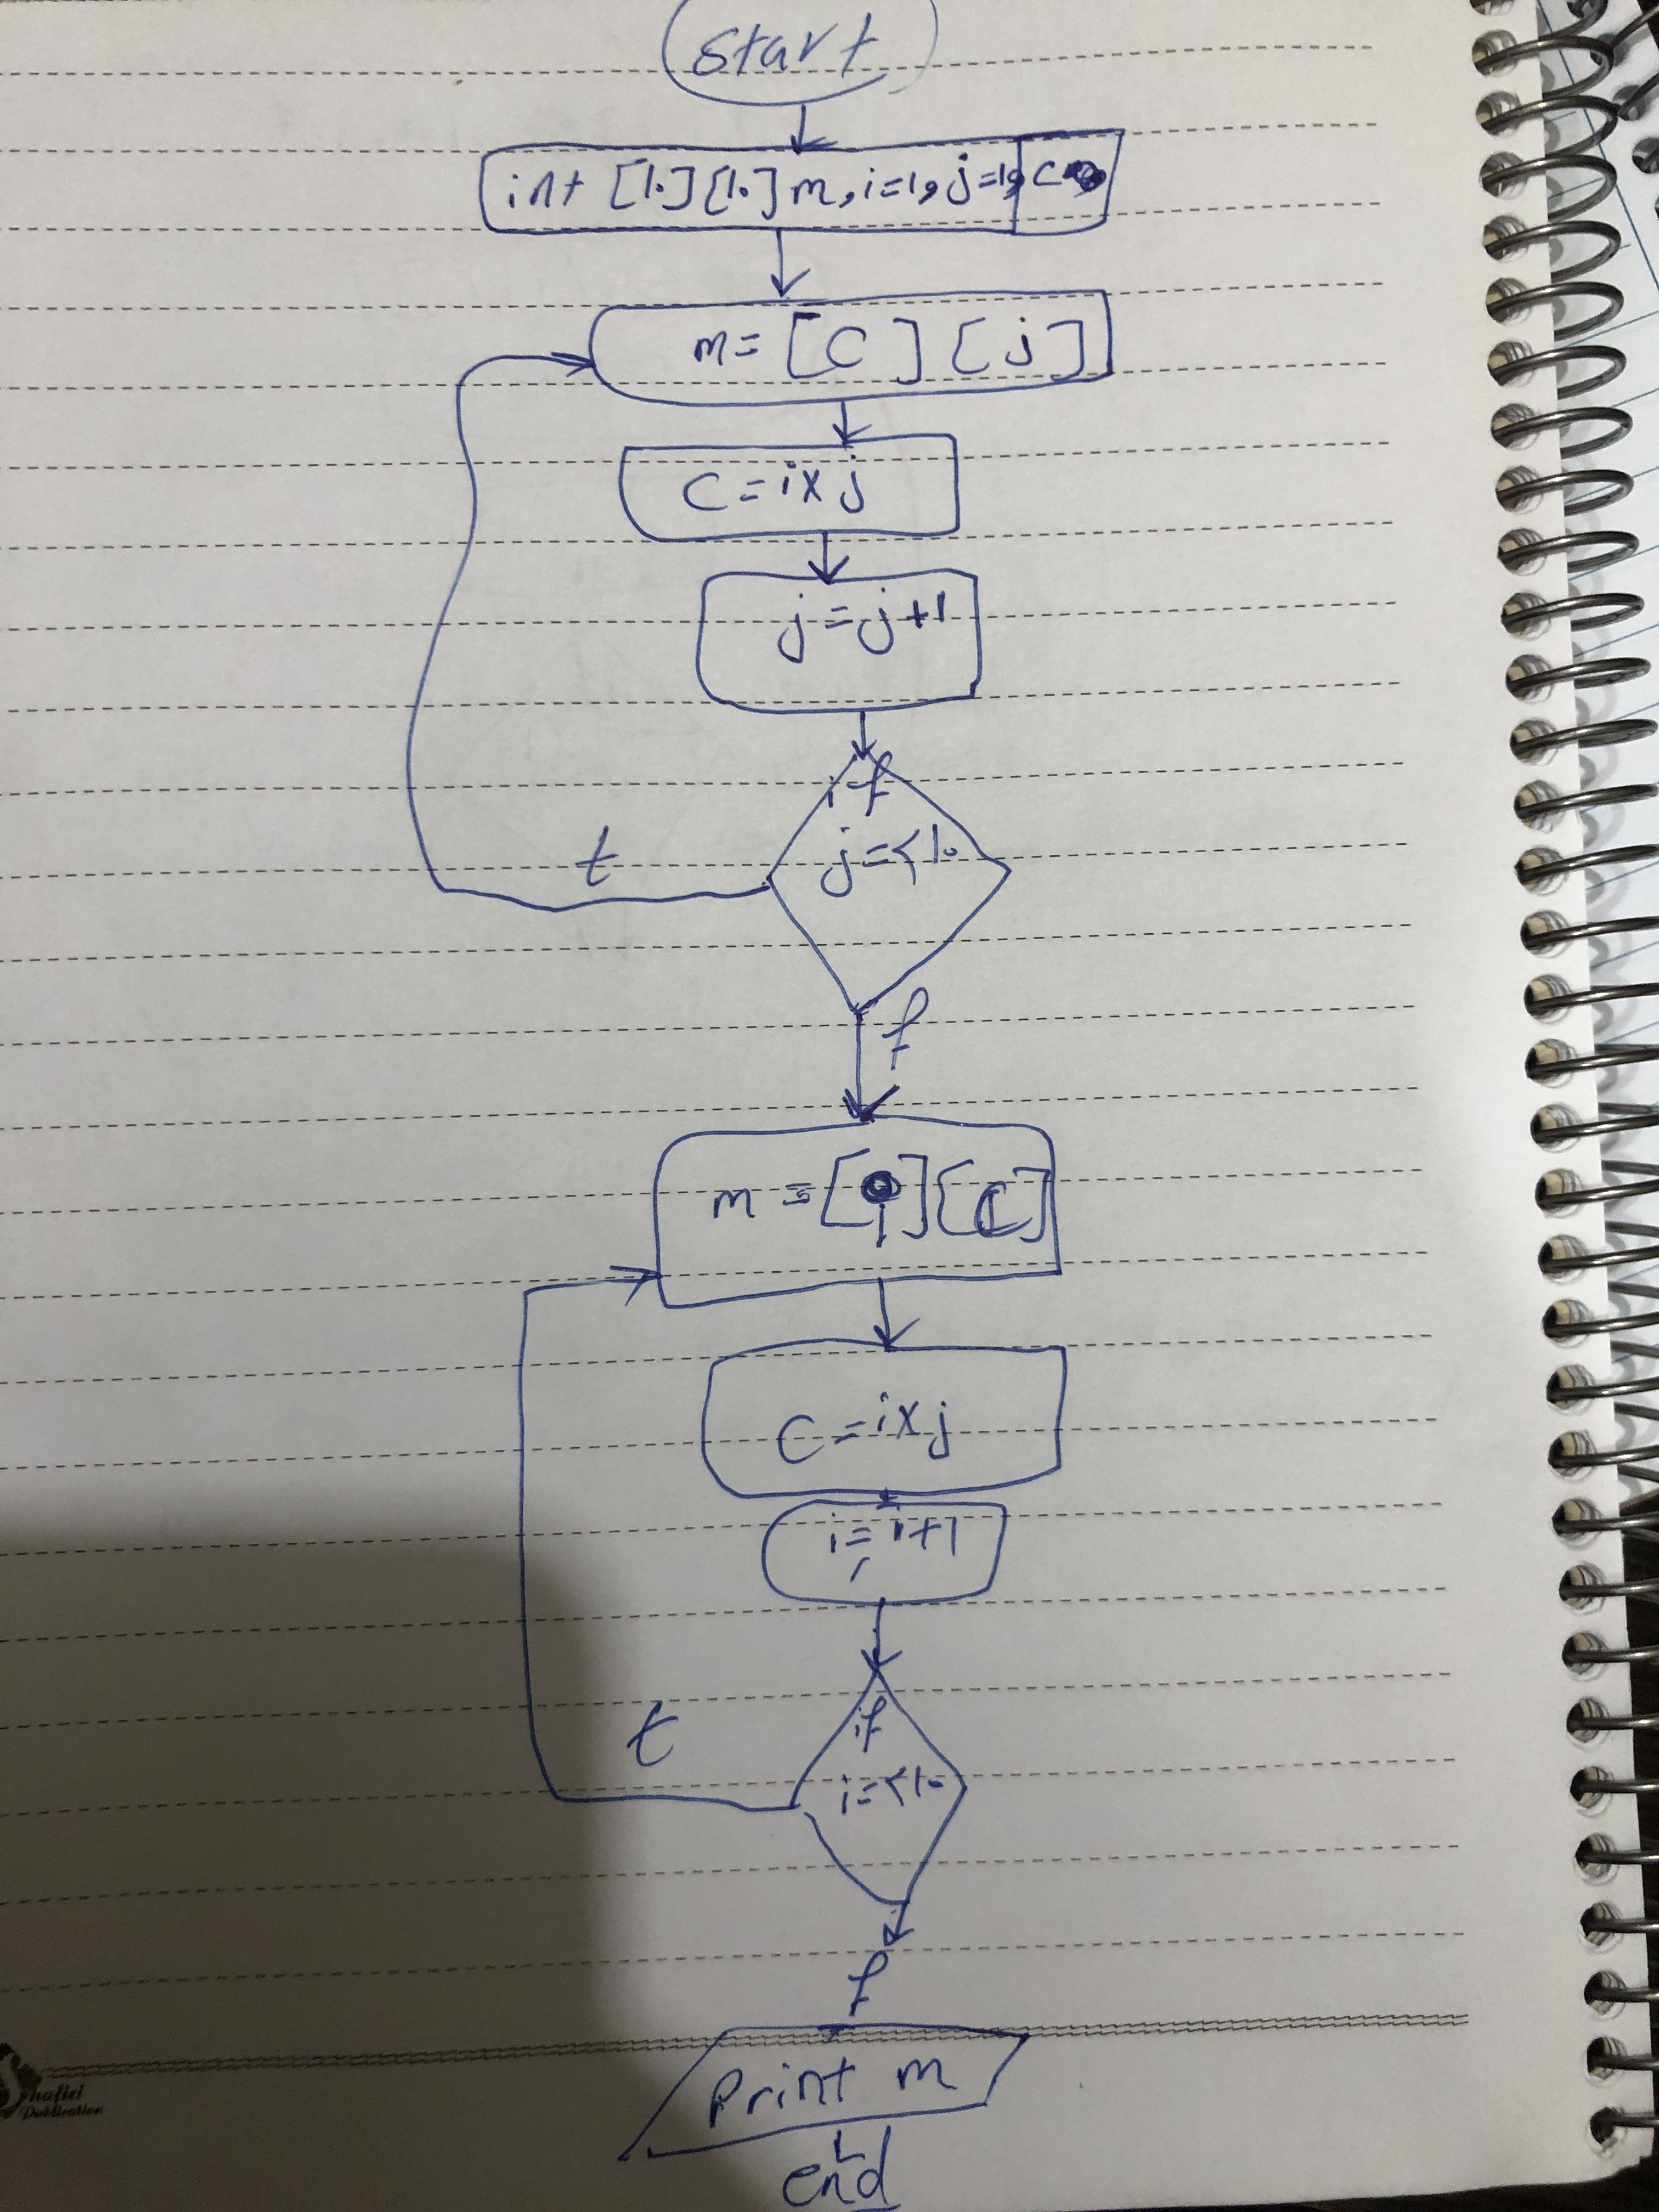 start
int [1.][1.] m, i=1, j=1, c
m = [C] [j]
C = i x j
j = j + 1
if
j = < 1.
t
f
m = [i] [C]
C = i x j
i = i + 1
if
i = < 1.
t
f
Print m
end
Shafiei
Publication